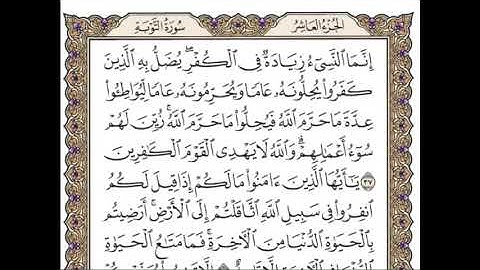 الجُزءُ العَاشِرُ
سُورَةُ التَّوۡبَةِ
إِنَّمَا ٱلنَّسِيٓءُ زِيَادَةٞ فِي ٱلۡكُفۡرِۖ يُضَلُّ بِهِ ٱلَّذِينَ
كَفَرُواْ يُحِلُّونَهُۥ عَامٗا وَيُحَرِّمُونَهُۥ عَامٗا لِّيُوَاطِـُٔواْ
عِدَّةَ مَا حَرَّمَ ٱللَّهُ فَيُحِلُّواْ مَا حَرَّمَ ٱللَّهُۚ زُيِّنَ لَهُمۡ
سُوٓءُ أَعۡمَٰلِهِمۡۗ وَٱللَّهُ لَا يَهۡدِي ٱلۡقَوۡمَ ٱلۡكَٰفِرِينَ
٣٧ يَٰٓأَيُّهَا ٱلَّذِينَ ءَامَنُواْ مَا لَكُمۡ إِذَا قِيلَ لَكُمُ
ٱنفِرُواْ فِي سَبِيلِ ٱللَّهِ ٱثَّاقَلۡتُمۡ إِلَى ٱلۡأَرۡضِۚ أَرَضِيتُم
بِٱلۡحَيَوٰةِ ٱلدُّنۡيَا مِنَ ٱلۡأٓخِرَةِۚ فَمَا مَتَٰعُ ٱلۡحَيَوٰةِ